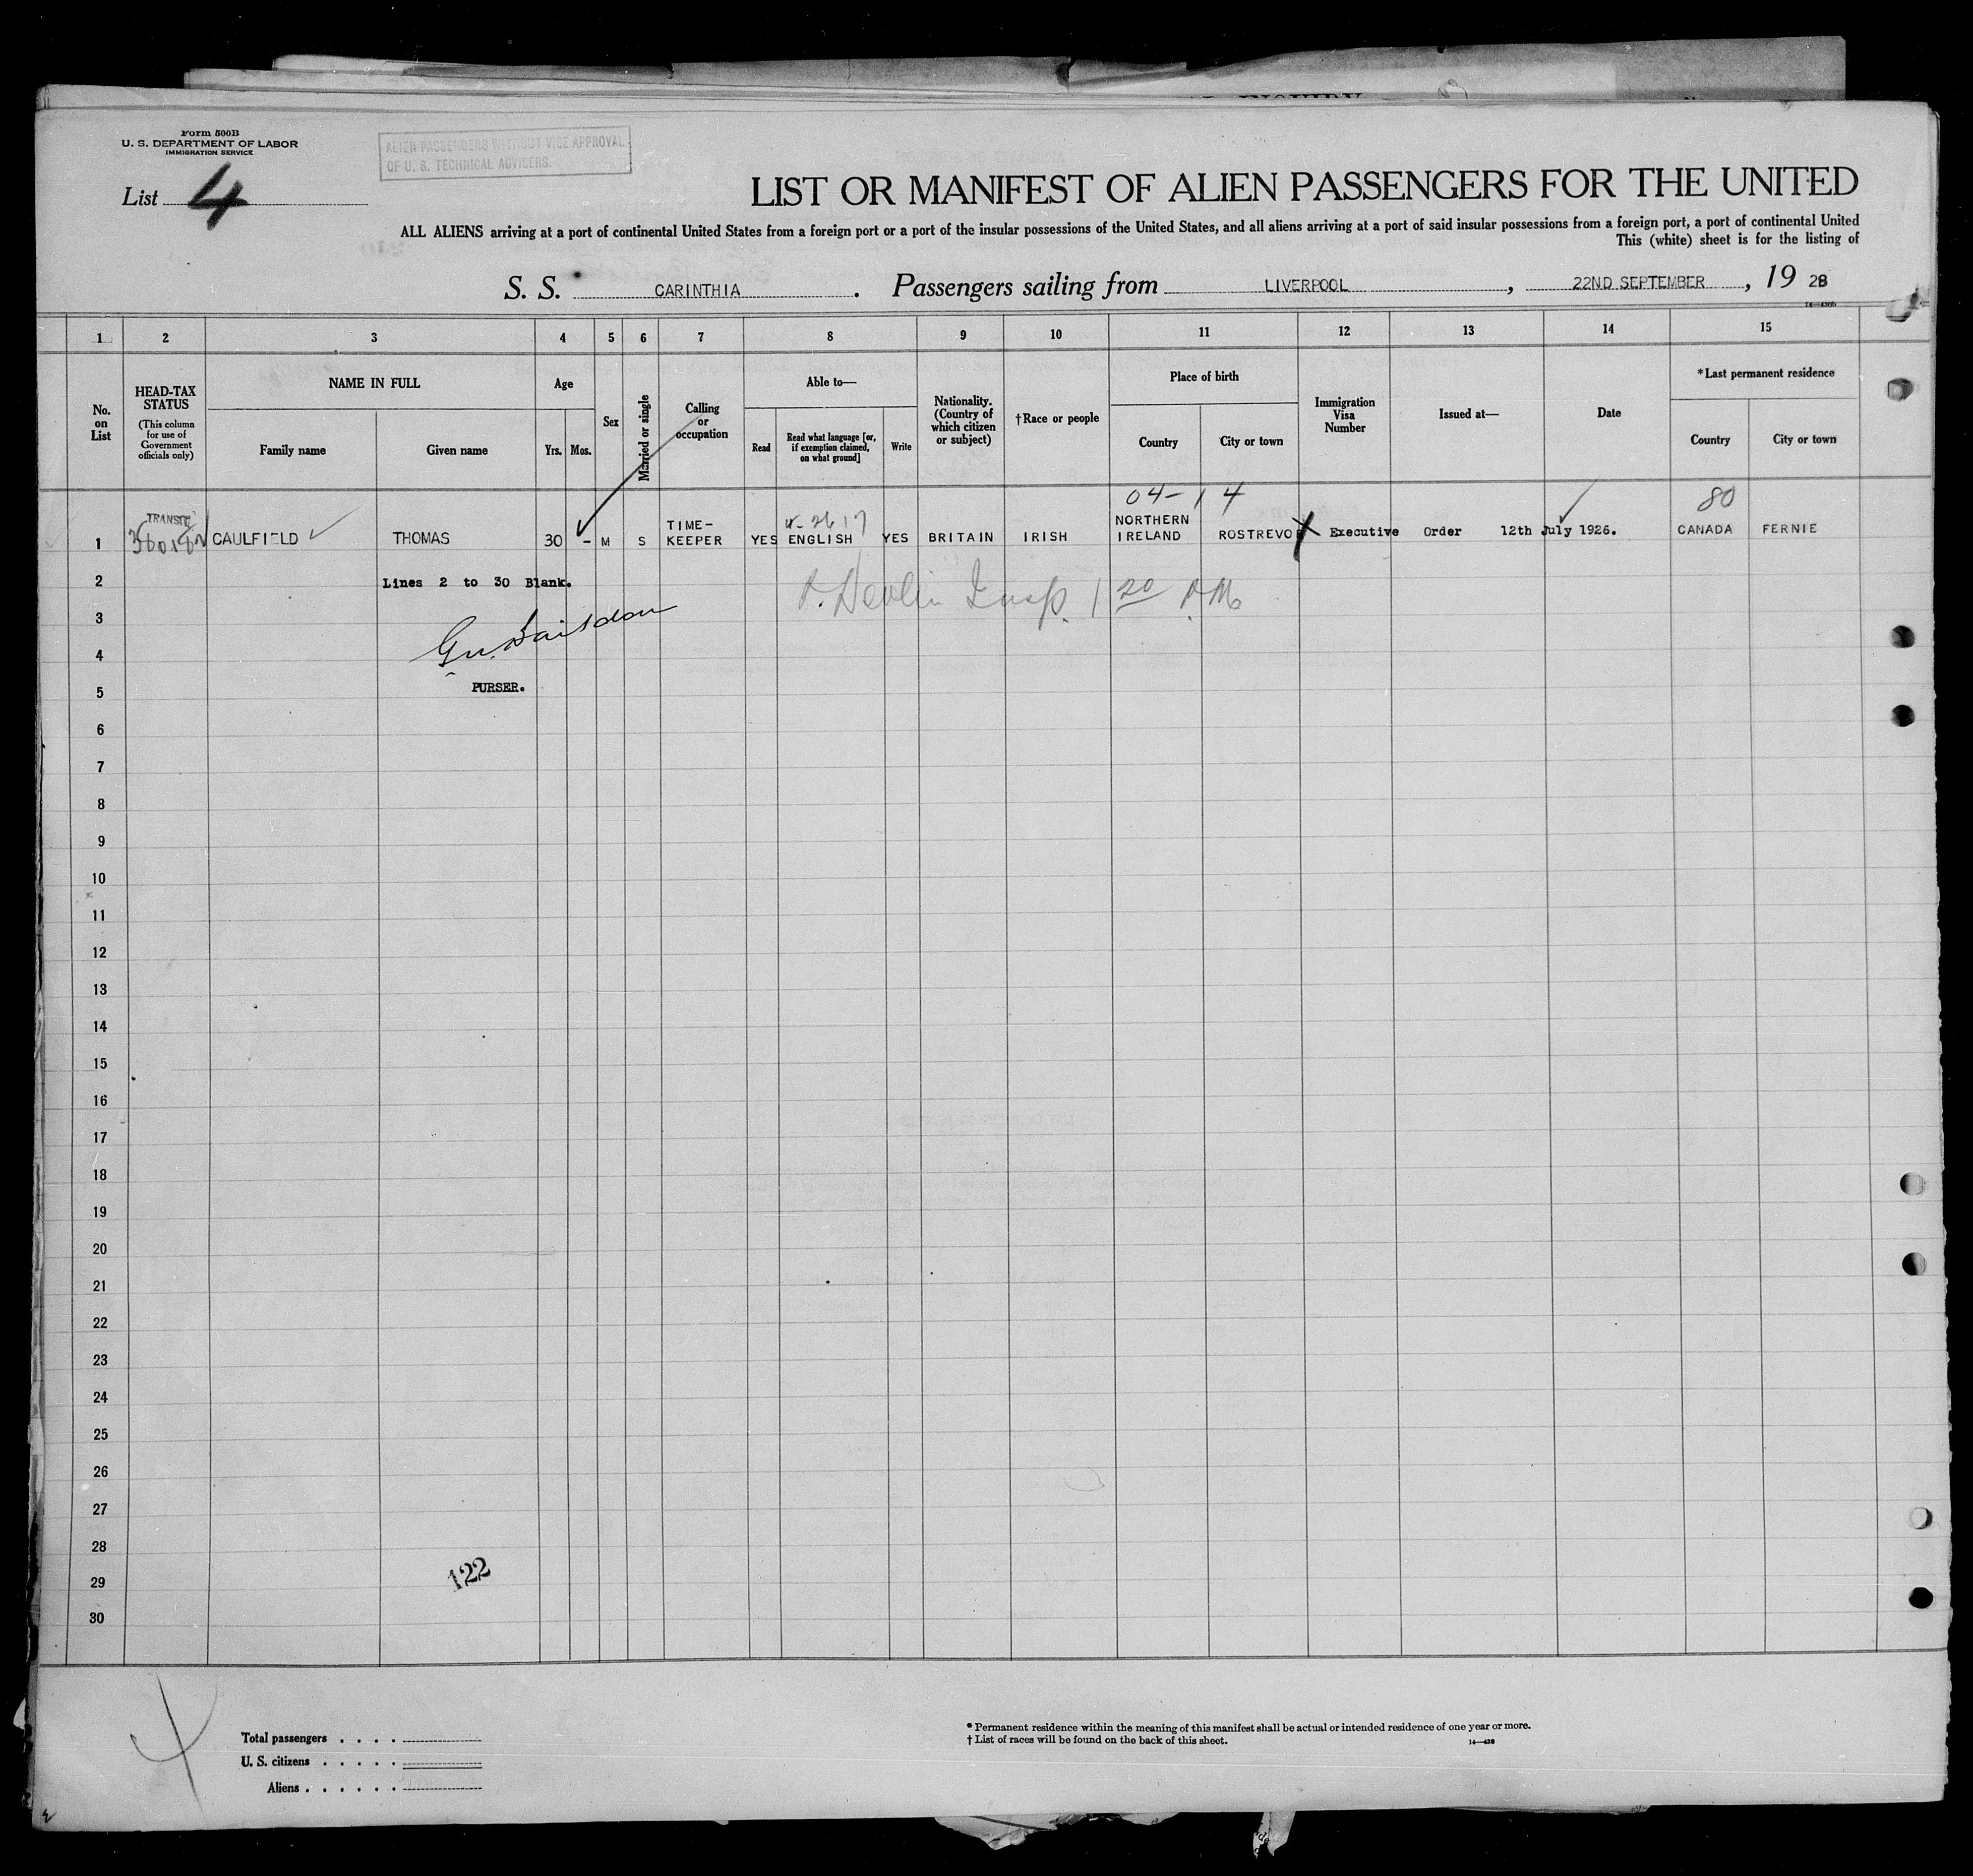 Form 500B
U. S. DEPARTMENT OF LABOR
IMMIGRATION SERVICE
ALIEN PASSENGERS WITHOUT VICE APPROVAL
OF U. S. TECHNICAL ADVISERS.
List 4
LIST OR MANIFEST OF ALIEN PASSENGERS FOR THE UNITED
ALL ALIENS arriving at a port of continental United States from a foreign port or a port of the insular possessions of the United States, and all aliens arriving at a port of said insular possessions from a foreign port, a port of continental United
This (white) sheet is for the listing of
S. S. CARINTHIA . Passengers sailing from LIVERPOOL , 22ND SEPTEMBER , 19 28
1 2 3 4 5 6 7 8 9 10 11 12 13 14 15
No. on List
HEAD-TAX STATUS
(This column for use of Government officials only)
NAME IN FULL
Family name
Given name
Age
Yrs. Mos.
Sex
Married or single
Calling or occupation
Able to—
Read
Read what language [or, if exemption claimed, on what ground]
Write
Nationality. (Country of which citizen or subject)
†Race or people
Place of birth
Country
City or town
Immigration Visa Number
Issued at—
Date
*Last permanent residence
Country
City or town
04-14 80
1 TRANSIT CAULFIELD THOMAS 30 - M S TIME-KEEPER YES ENGLISH YES BRITAIN IRISH NORTHERN IRELAND ROSTREVOR Executive Order 12th July 1926. CANADA FERNIE
2 Lines 2 to 30 Blank.
Devlin Insp. 1 20 P.M.
3
4
5 PURSER.
6
7
8
9
10
11
12
13
14
15
16
17
18
19
20
21
22
23
24
25
26
27
28
29 122
30
Total passengers . . . .
U. S. citizens . . . . .
Aliens . . . . . .
* Permanent residence within the meaning of this manifest shall be actual or intended residence of one year or more.
† List of races will be found on the back of this sheet.